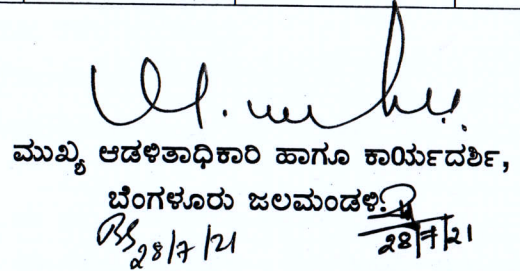 ಮುಖ್ಯ ಆಡಳಿತಾಧಿಕಾರಿ ಹಾಗೂ ಕಾರ್ಯದರ್ಶಿ,
ಬೆಂಗಳೂರು ಜಲಮಂಡಳಿ.
28/7/21
28/7/21